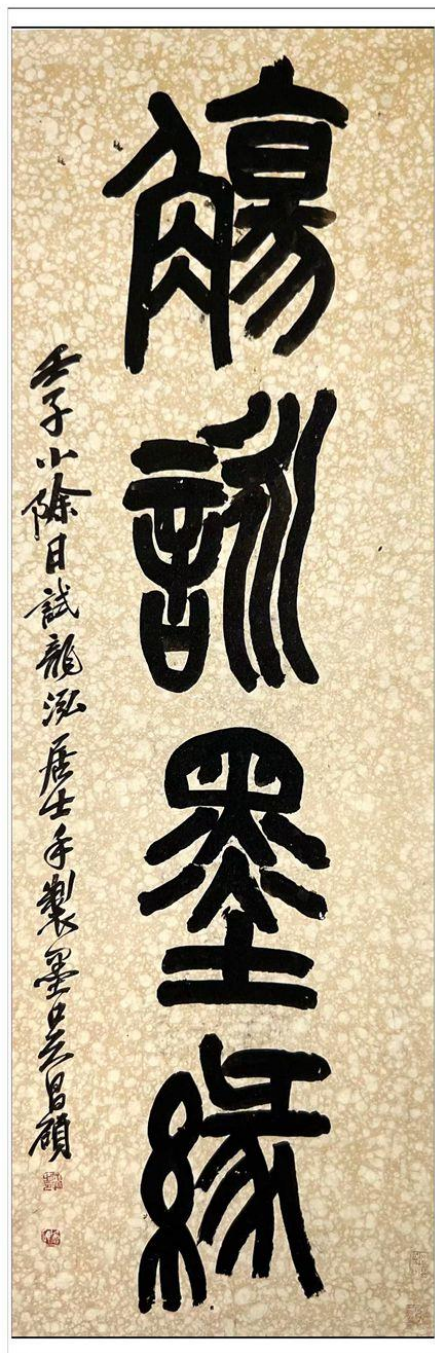 觴詠墨緣
壬子小除日試龍泓居士手製墨吳昌碩